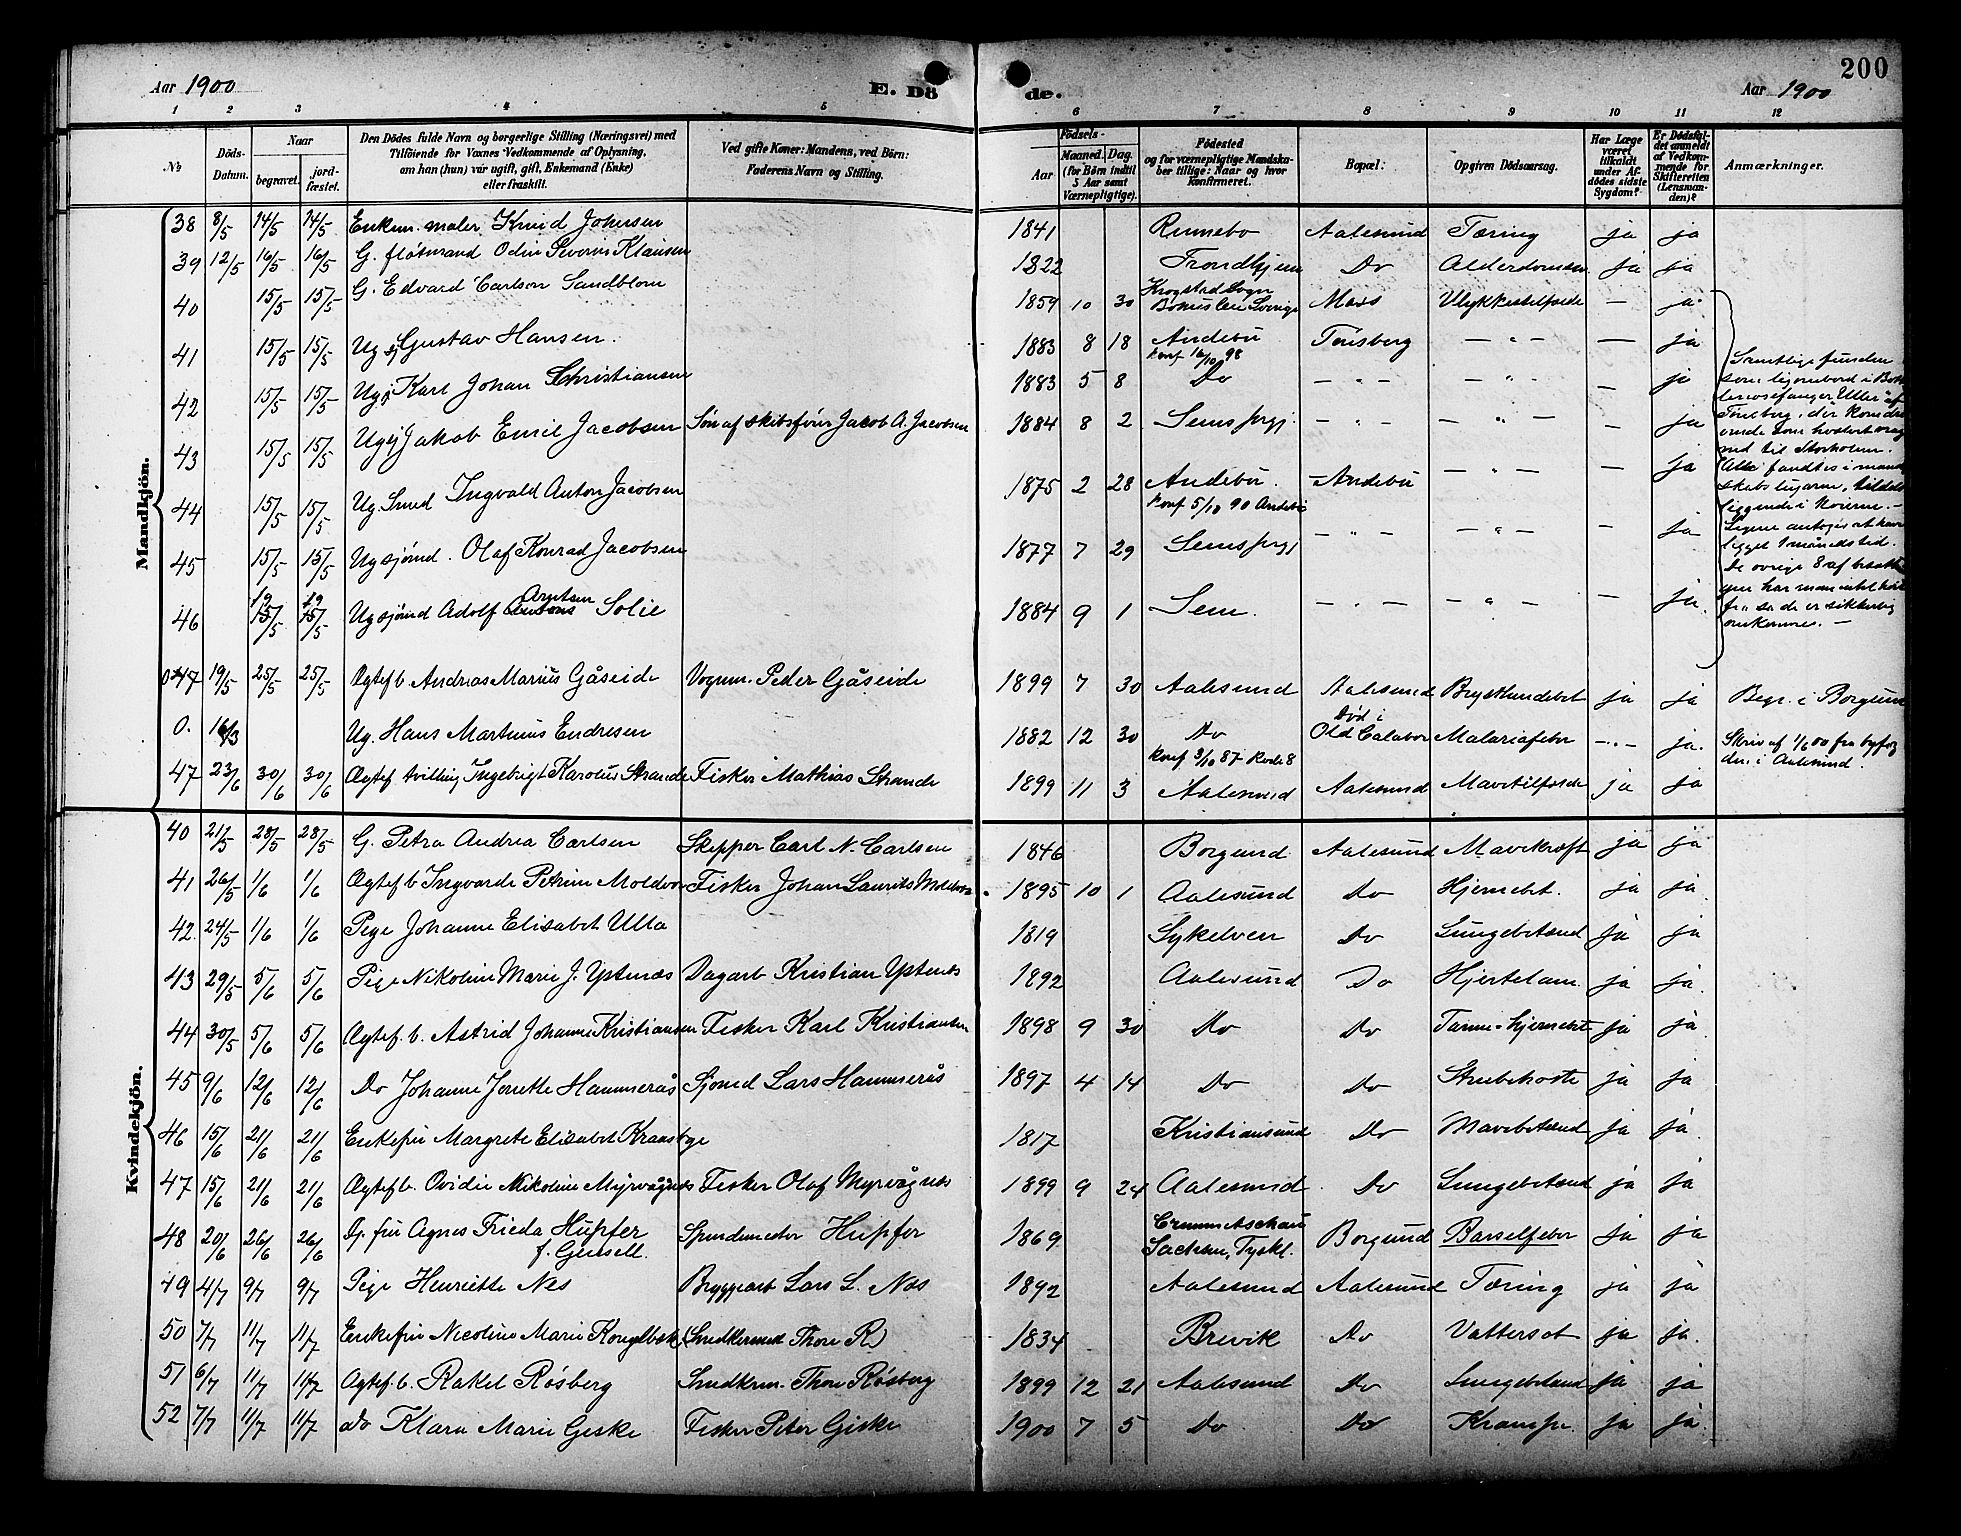 200
Aar 1900
E. Dö
de.
Aar 1900
1 2 3 4 5 6 7 8 9 10 11 12
№
Döds-
Datum.
Naar
begravet.
jord-
fæstet.
Den Dödes fulde Navn og borgerlige Stilling (Næringsvei) med
Tilföiende for Voxnes Vedkommende af Oplysning,
om han (hun) var ugift, gift, Enkemand (Enke)
eller fraskilt.
Ved gifte Koner: Mandens, ved Börn:
Faderens Navn og Stilling.
Födsels-
Aar
Maaned.
Dag.
(for Börn indtil
5 Aar samt
Værnepligtige).
Födested
og for værnepligtige Mandska-
ber tillige: Naar og hvor
konfirmeret.
Bopæl:
Opgiven Dödsaarsag.
Har Læge
været
tilkaldt
under Af-
dödes sidste
Sygdom?
Er Dödsfal-
det anmeldt
af Vedkom-
mende for
Skifteretten
(Lensman-
den)?
Anmærkninger.
Mandkjön.
38 8/5 14/5 14/5 Enkem. maler Knud Johnsen 1841 Rennebo Aalesund Tæring ja ja
39 12/5 16/5 16/5 G. fløtmand Odin Severin Klausen 1822 Trondhjem Do Alderdomssv ja ja
40 15/5 15/5 G. Edvard Carlson Sandblom 1859 10 30 Krogstad Sogn
Bohuslen Sverige Moss Ulykkestilfælde — ja
41 15/5 15/5 Ug sj Gustav Hansen. 1883 8 18 Andebu Tønsberg — " — — ja
konf 16/10 98
42 15/5 15/5 Ug sj Karl Johan Christiansen 1883 5 8 Do — " — — " — — ja
43 15/5 15/5 Ug sj Jakob Emil Jacobsen Søn af skibsfører Jacob A. Jacobsen 1884 8 2 Sem — " — — " — — ja
44 15/5 15/5 Ug. Smed Ingvald Anton Jacobsen 1875 2 28 Andebu. Andebu — " — — ja
konf 5/10 90 Andebu
45 15/5 15/5 Ug sjømd. Olaf Konrad Jacobsen 1877 7 29 Sem — " — — " — — ja
46 19/5 19/5 Ug sjømd Adolf Arntsen Solie 1884 9 1 Sem. — " — — " — — ja.
Samtlige funden
som lig ombord i
fanger Uller af
Tønsberg, der kom dri
vende som kvalvet vrag
ned til Storholmen.
Alle fandtes i mand
skabslugarne, tildels
liggende i Koierne. —
Ligene antoges at have
ligget 1 måneds tid.
De øvrige 8 af besætn
gen har man intet hørt
fra sa de er sikkerlig
omkomne. —
47 19/5 25/5 25/5 Ægtef b. Andreas Marius Gåseide Vognm. Peder Gåseide 1899 7 30 Aalesund Aalesund Brystbetændelse ja ja Begr. i Borgund
0. 16/3 Ug. Hans Martinus Endresen 1882 12 30 Do Død i
Old Calabar Malariafeber — " — ja. Skriv af 1/6 00 fra byfog
den i Aalesund.
47 23/6 30/6 30/6 Ægtef tvilling Ingebrigt Karolus Strande Fisker Mathias Strande 1899 11 3 Aalesund Aalesund Mavetilfælde ja ja
Kvindekjön.
40 21/5 28/5 28/5 G. Petra Andrea Carlsen Skipper Carl N. Carlsen 1846 Borgund Aalesund Mavekræft ja ja
41 26/5 1/6 1/6 Ægtef b Ingvarde Petrine Moldvor Fisker Johan Laurits Moldvor 1895 10 1 Aalesund Do Hjernebet. ja ja
42 24/5 1/6 1/6 Pige Johanne Elisabet Ulla 1819 Sykelven Do Lungebetænd ja ja
43 29/5 5/6 5/6 Pige Nikoline Marie J. Ystenæs Dagarb Kristian Ystenes 1892 Aalesund Do Hjertelam. ja ja
44 30/5 5/6 5/6 Ægtef. b. Astrid Johanne Kristiansen Fisker Karl Kristiansen 1898 9 30 Do Do Tarm-hjernebet ja ja
45 9/6 12/6 12/6 Do Johanne Jonette Hammerås Sjømd Lars Hammerås 1897 4 14 Do Do Strubehoste ja ja
46 15/6 21/6 21/6 Enkefru Margrete Elisabet Kraasbye 1817 Kristiansund Do Mavebetænd ja ja.
47 15/6 21/6 21/6 Ægtef b. Ovidie Nikoline Myrvågnes Fisker Olaf Myrvågnes 1899 9 24 Aalesund Do Lungebetænd ja ja
48 20/6 26/6 26/6 G. fru Agnes Frieda Hüpfer
f. Gensell. Spindemester Hüpfer 1869 Crummitschau
Sachsen, Tyskl. Borgund Barselfeber ja ja
49 4/7 9/7 9/7 Pige Henriette Nes Bryggearb Lars L. Nes 1892 Aalesund Aalesund Tæring ja ja
50 7/7 11/7 11/7 Enkefru Nicoline Marie Kongelbek (Snedkersvend Thore R) 1834 Brevik Do Vattersot ja ja.
51 6/7 11/7 11/7 Ægtef. b. Rakel Røsberg Snedkerm. Thore Røsberg 1899 12 21 Aalesund Do Lungebetænd ja ja
52 7/7 11/7 11/7 do Klara Marie Giske Fisker Peter Giske 1900 7 5 Do Do Krampe ja ja.